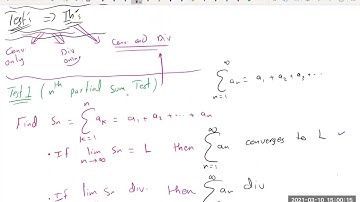 Test's => Th's
Conv only
Div only
Conv and Div
∞ Σ n=1 an = a1 + a2 + a3 + ...
Test 1 (nth partial sum Test)
Find Sn = n Σ k=1 ak = a1 + a2 + ... + an
• If lim n→∞ Sn = L then ∞ Σ n=1 an converges to L
• If lim Sn div. then ∞ Σ an div
2021-03-10 15:00:15